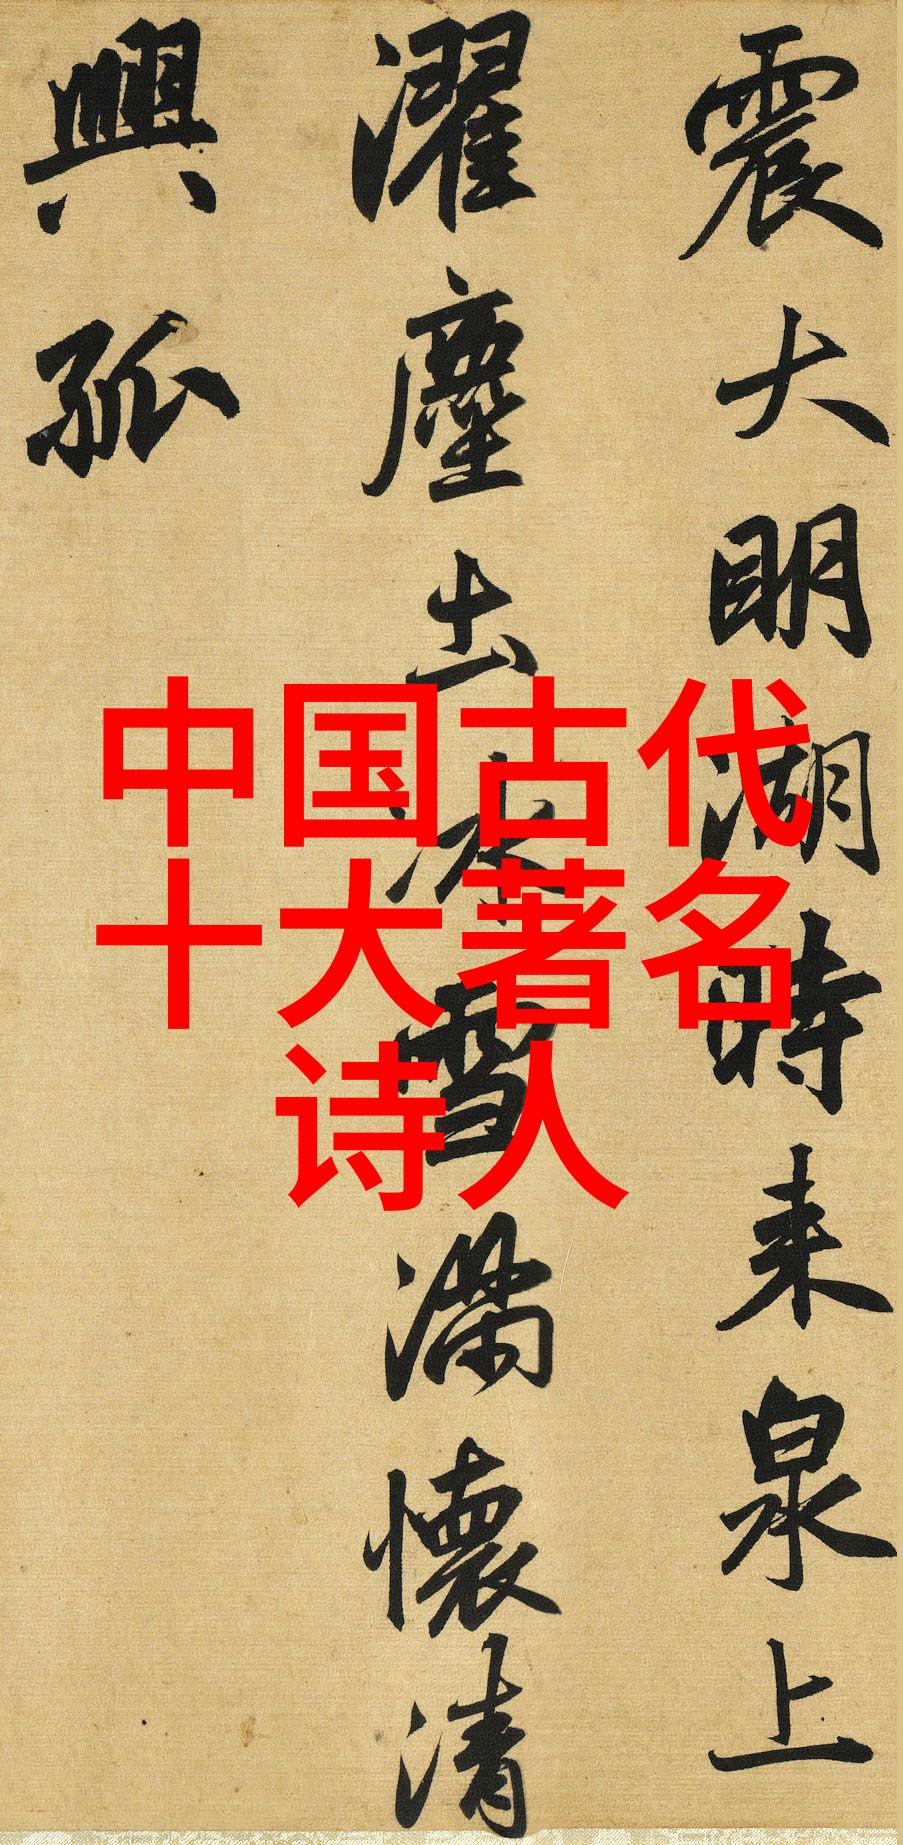 震大明湖時来泉上
濯塵土冰雪滿懷清
興孤
中国古代
十大著名
诗人